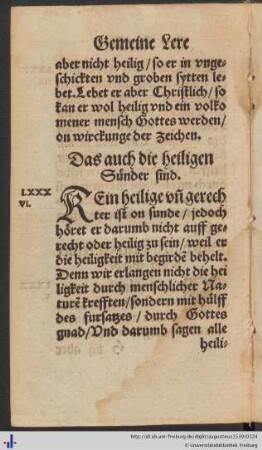 Gemeine Lere
aber nicht heilig/ so er in vnge-
schickten vnd groben sytten le-
bet. Lebet er aber Christlich/ so
kan er wol heilig vnd ein volko
mener mensch Gottes werden/
on wirckunge der Zeichen.
Das auch die heiligen
Sünder sind.
LXXX
VI.
KEin heilige vñ gerech
ter ist on sunde/ jedoch
höret er darumb nicht auff ge-
recht oder heilig zu sein/ weil er
die heiligkeit mit begirdē behelt.
Denn wir erlangen nicht die hei
ligkeit durch menschlicher Na-
turē krefften/ sondern mit hülff
des fursatzes/ durch Gottes
gnad/ Vnd darumb sagen alle
heili-
© Universitätsbibliothek Freiburg